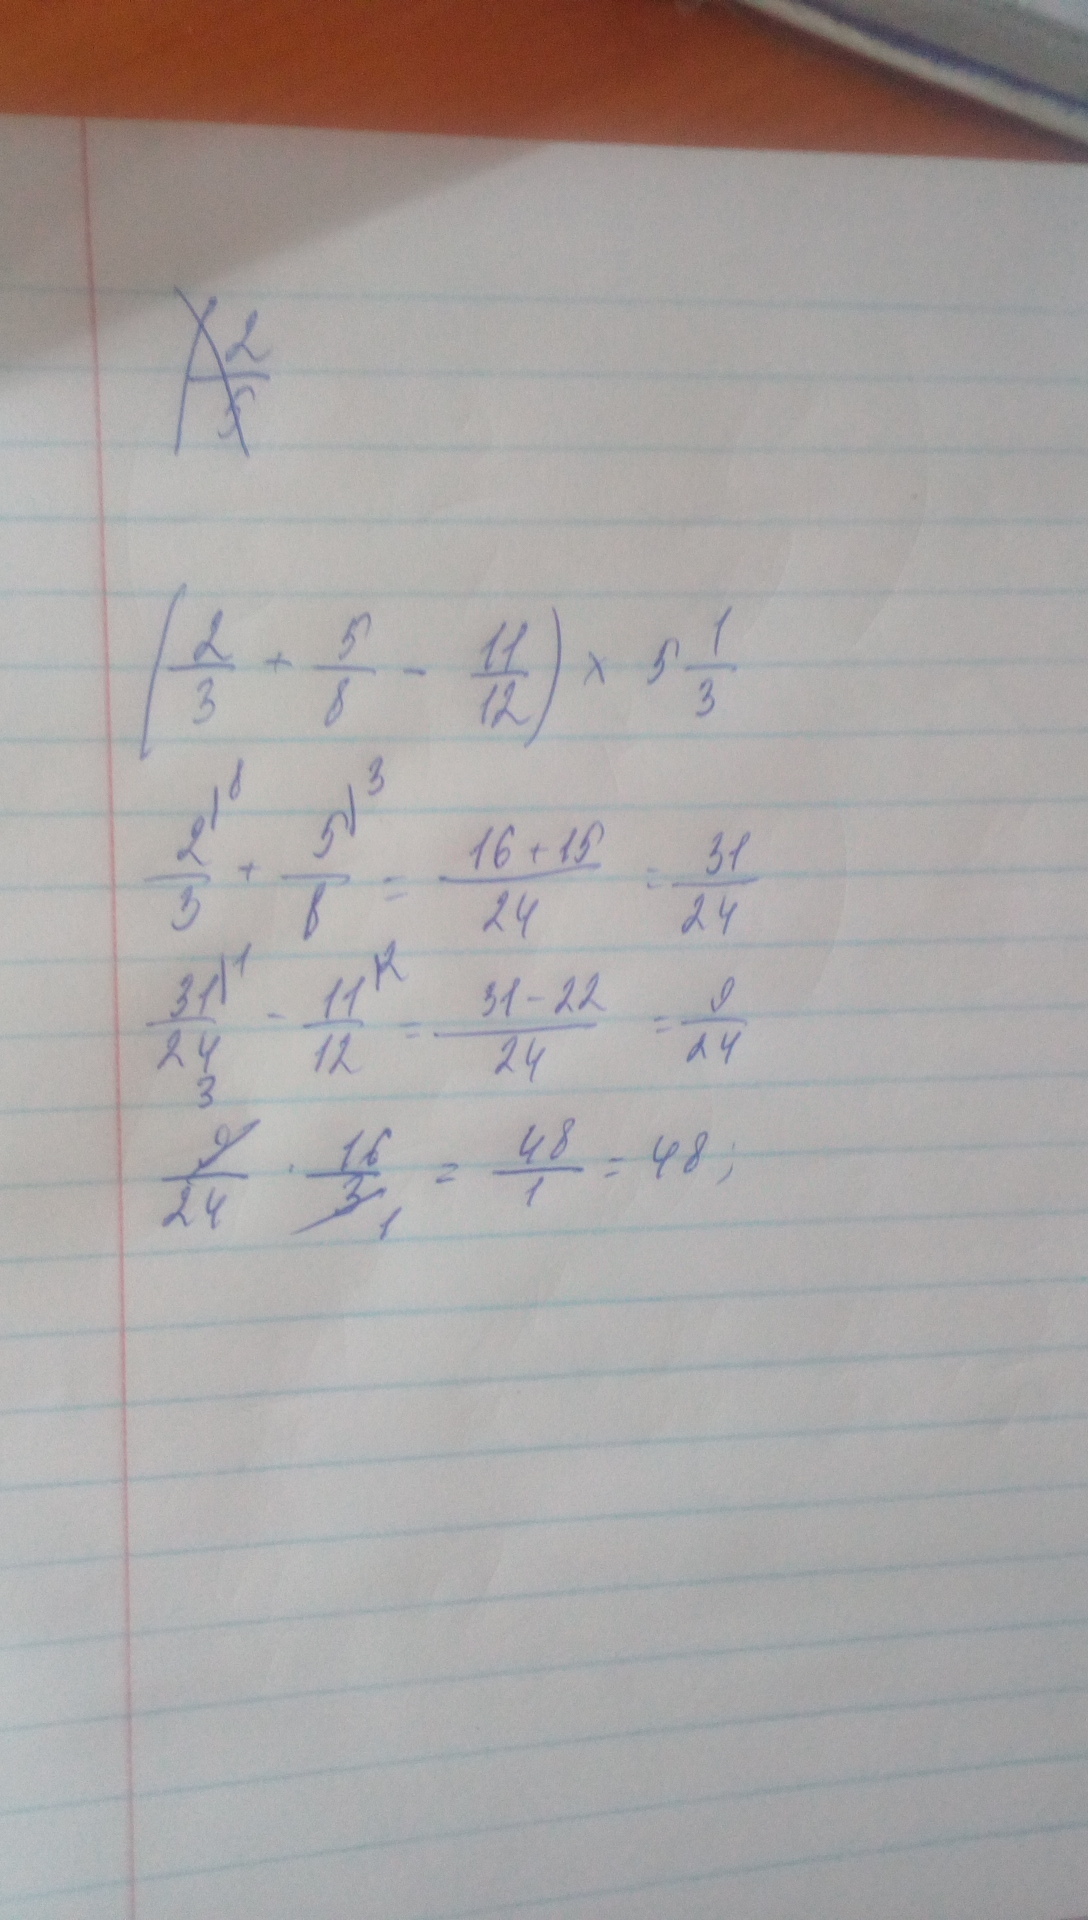 2/5
(2/3 + 5/8 - 11/12) × 5 1/3
2/3 |8 + 5/8 |3 = 16+15/24 = 31/24
31/24 |1 - 11/12 |2 = 31-22/24 = 9/24
3
9/24 · 16/3 1 = 48/1 = 48;